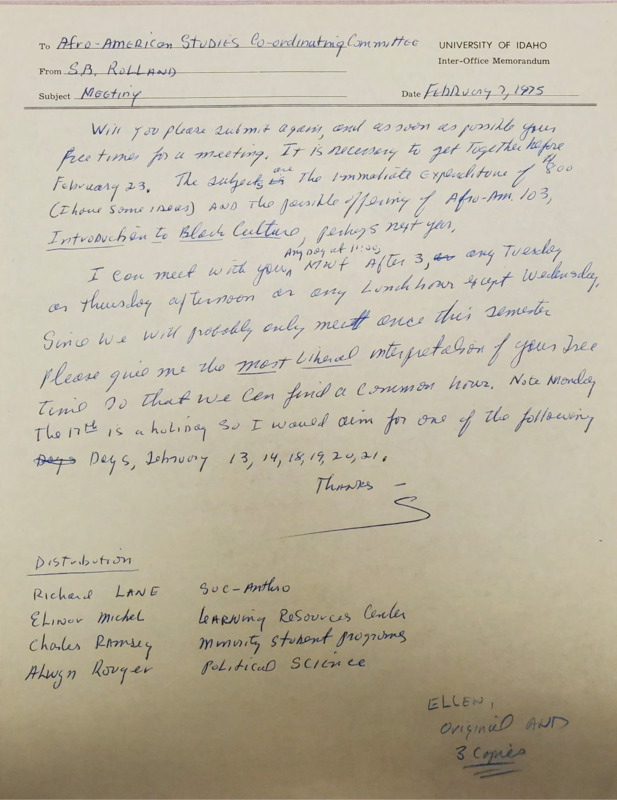 To Afro-American Studies Co-ordinating Committee
UNIVERSITY OF IDAHO
From S.B. Rolland
Inter-Office Memorandum
Subject Meeting
Date February 7, 1975
Will you please submit again, and as soon as possible your
free times for a meeting. It is necessary to get together before
February 23. The subjects are the immediate expenditure of $800
(I have some ideas) AND the possible offering of Afro-Am. 103,
Introduction to Black Culture, perhaps next year.
I can meet with you, Any day at 11:00, MWF After 3, any Tuesday
or Thursday afternoon or any Lunch hour except Wednesday.
Since we will probably only meet once this semester
Please give me the most Liberal interpretation of your free
time so that we can find a common hour. Note Monday
the 17th is a holiday so I would aim for one of the following
Days, February 13, 14, 18, 19, 20, 21.
Thanks –
S
Distribution
Richard LANE Soc-Anthro
Elinor Michel Learning Resources Center
Charles Ramsey Minority Student programs
Alwyn Rouyer Political Science
ELLEN,
Original AND
3 Copies